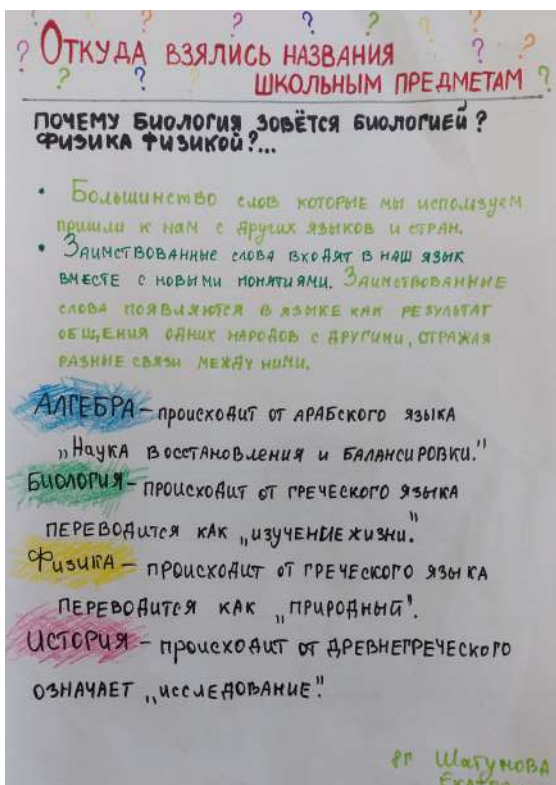 ? ? ? ? ? ? ?
? ОТКУДА ВЗЯЛИСЬ НАЗВАНИЯ ? ?
? ? ? ? ШКОЛЬНЫМ ПРЕДМЕТАМ ?
ПОЧЕМУ БИОЛОГИЯ ЗОВЁТСЯ БИОЛОГИЕЙ?
ФИЗИКА ФИЗИКОЙ?...
• Большинство слов которые мы используем
пришли к нам с других языков и стран.
• Заимствованные слова входят в наш язык
вместе с новыми понятиями. Заимствованные
слова появляются в языке как результат
общения одних народов с другими, отражая
разные связи между ними.
АЛГЕБРА – происходит от АРАБского языка
„Наука восстановления и балансировки."
Биология – происходит от греческого языка
переводится как „изучение жизни."
Физика – происходит от греческого языка
переводится как „природный".
История – происходит от древнегреческого
означает „исследование."
8г Шатунова